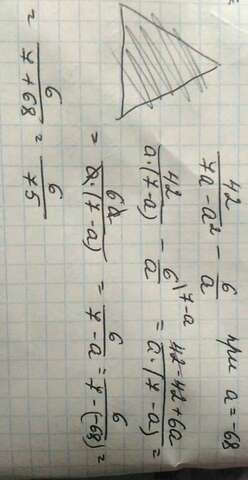 42/(7a-a²) - 6/a при a = -68
42/(a·(7-a)) - 6/a \7-a = (42-42+6a)/(a·(7-a)) =
= 6a/(a·(7-a)) = 6/(7-a) = 6/(7-(-68)) =
= 6/(7+68) = 6/75